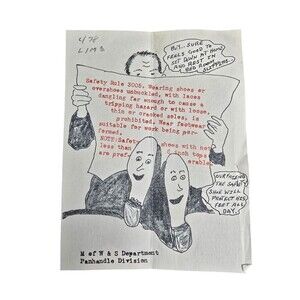 4/78
LIMB
BOY.. SURE
FEELS GOOD TO
SIT DOWN AT HOME
AND REST IN
BED ROOM
SLIPPERS
Safety Rule 3005: Wearing shoes or
overshoes unbuckled, with laces
dangling far enough to cause a
tripping hazard or with loose,
thin or cracked soles, is
prohibited. Wear footwear
suitable for work being per-
formed.
NOTE: Safety shoes with not
less than 6 inch tops
are preferable
OUR FRIEND
THE SAFETY
SHOE WILL
PROTECT HIS
FEET ALL
DAY...
M of W & S Department
Panhandle Division